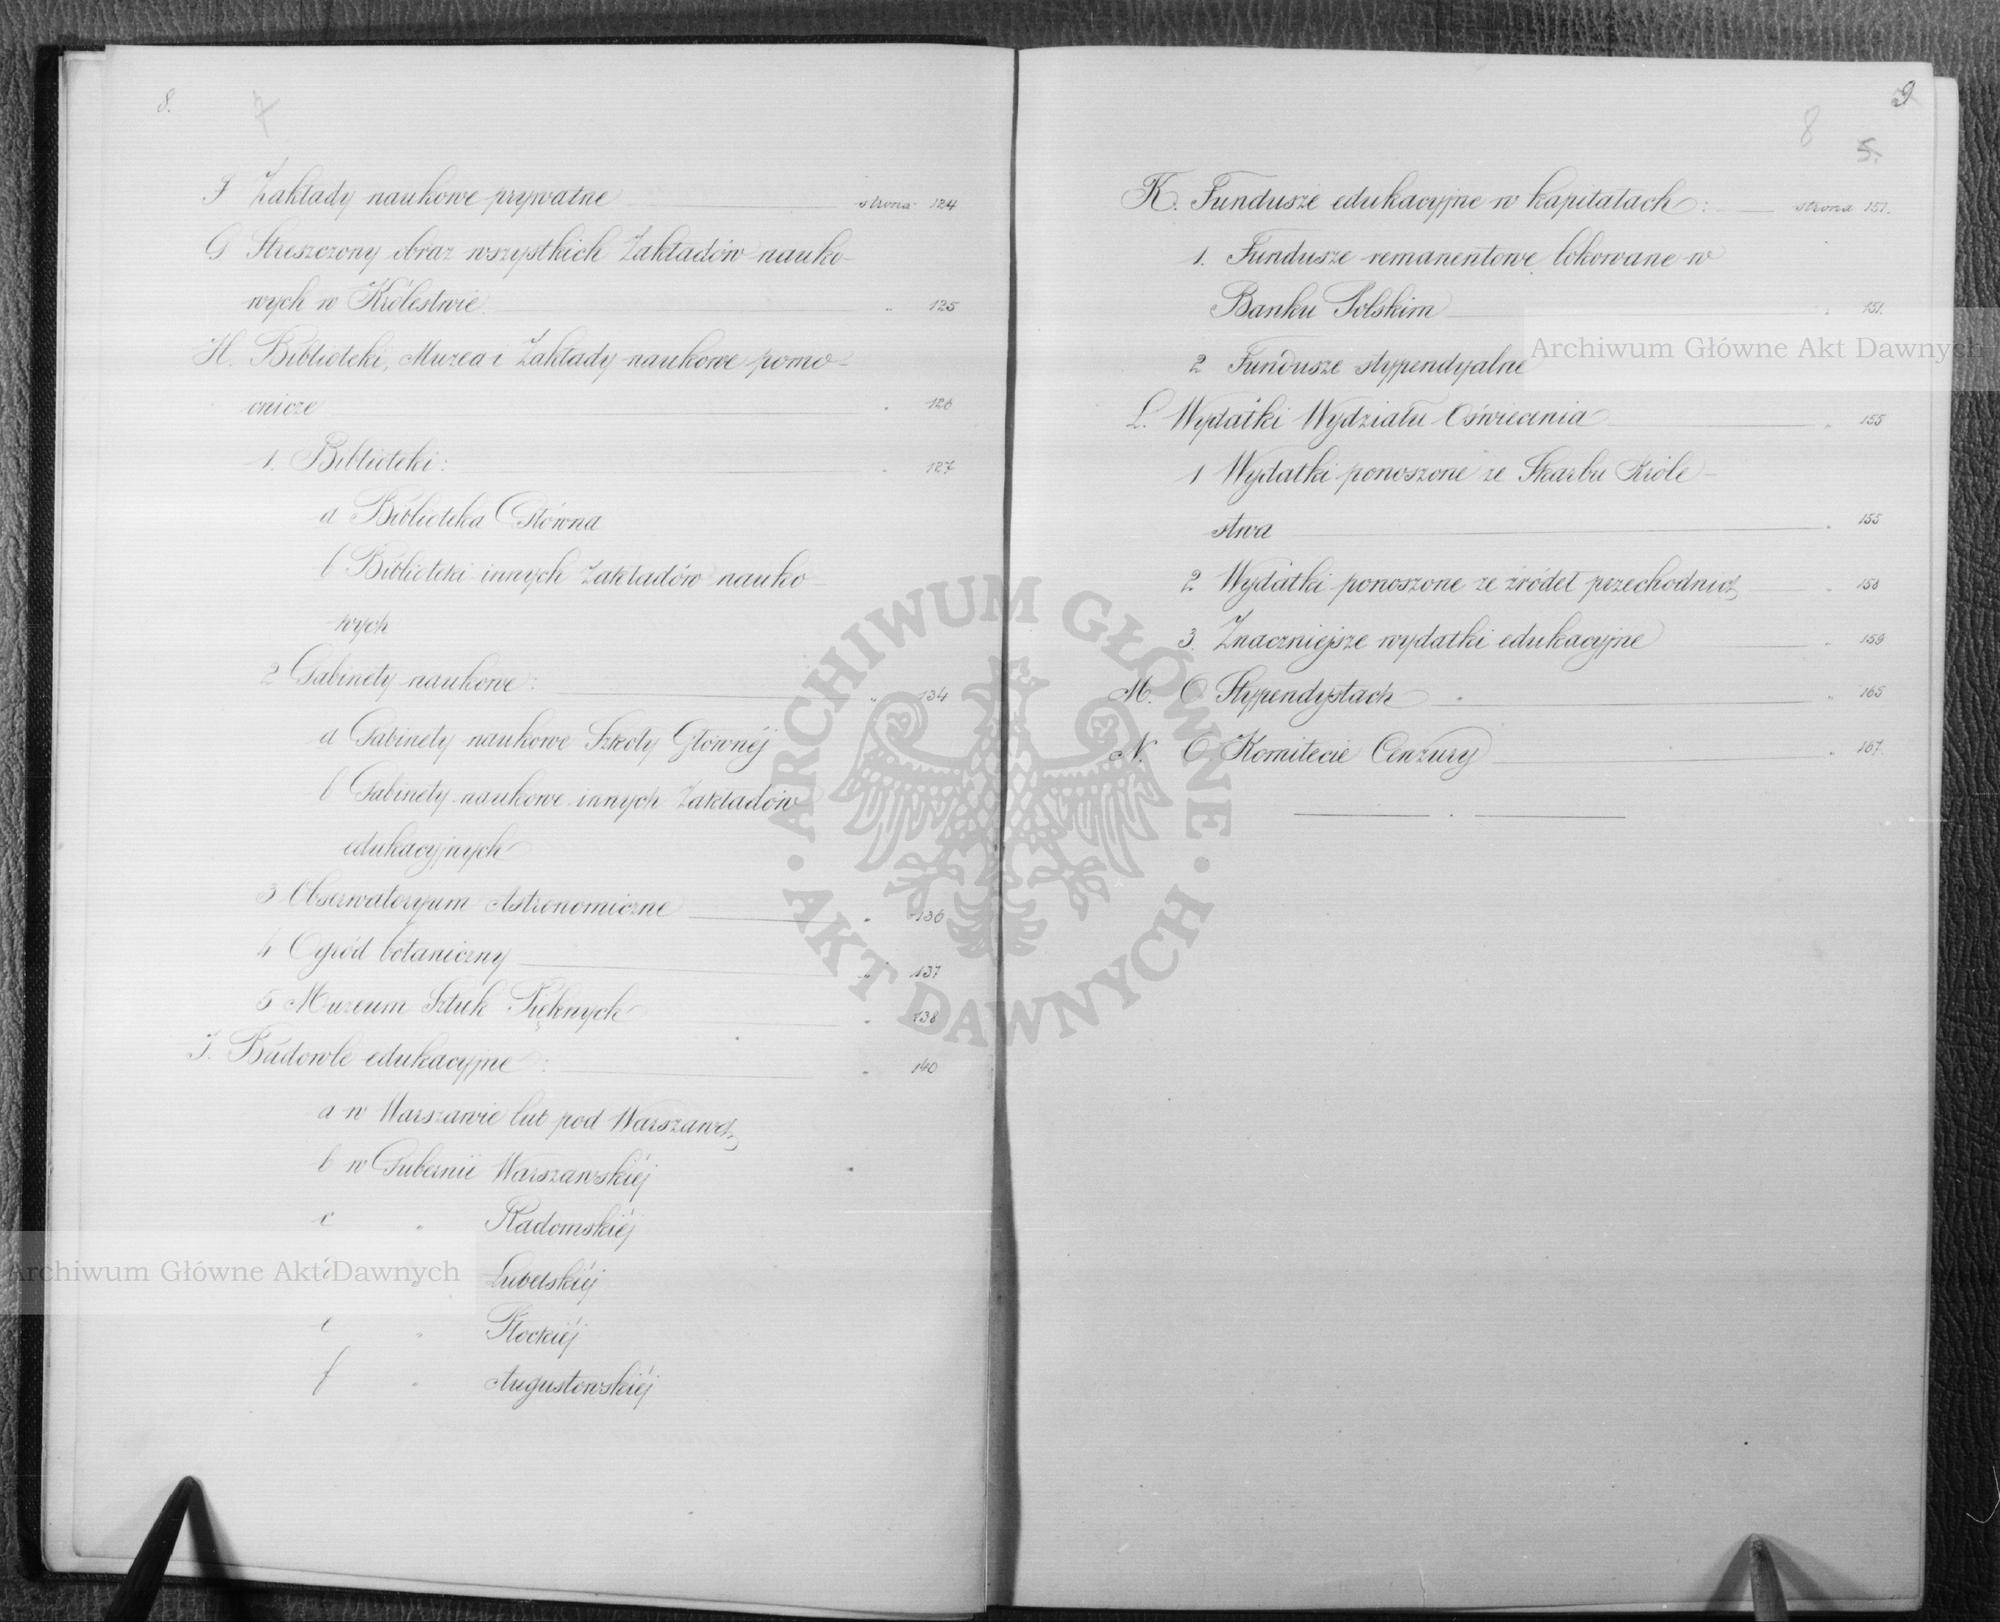 8.
7
F Zakłady naukowe prywatne strona 124
G Streszczony obraz wszystkich Zakładów nauko-
wych w Królestwie " 125
H. Biblioteki, Muzea i Zakłady naukowe pomo-
cnicze " 126
1. Biblioteki: " 127
a Biblioteka Główna
b Biblioteki innych Zakładów nauko-
wych
2 Gabinety naukowe: " 134
a Gabinety naukowe Szkoły Głównéj
b Gabinety naukowe innych Zakładów
edukacyjnych
3 Obserwatoryum Astronomiczne " 136
4 Ogród botaniczny " 137
5 Muzeum Sztuk Pięknych " 138
J. Budowle edukacyjne: " 140
a w Warszawie lub pod Warszawą
b w Gubernii Warszawskiéj
c " Radomskiéj
d " Lubelskiéj
e " Płockiéj
f " Augustowskiéj
9
8
5.
K. Fundusze edukacyjne w kapitałach: strona 151.
1. Fundusze remanentowe lokowane w
Banku Polskim " 151.
2 Fundusze stypendyalne
L. Wydatki Wydziału Oświecenia " 155
1 Wydatki ponoszone ze Skarbu Króle-
stwa " 155
2. Wydatki ponoszone ze źródeł przechodnich " 158
3. Znaczniejsze wydatki edukacyjne " 159
M. O Stypendystach " 165
N. O Komitecie Cenzury " 167.
Archiwum Główne Akt Dawnych
Archiwum Główne Akt Dawnych
ARCHIWUM GŁÓWNE • AKT DAWNYCH •